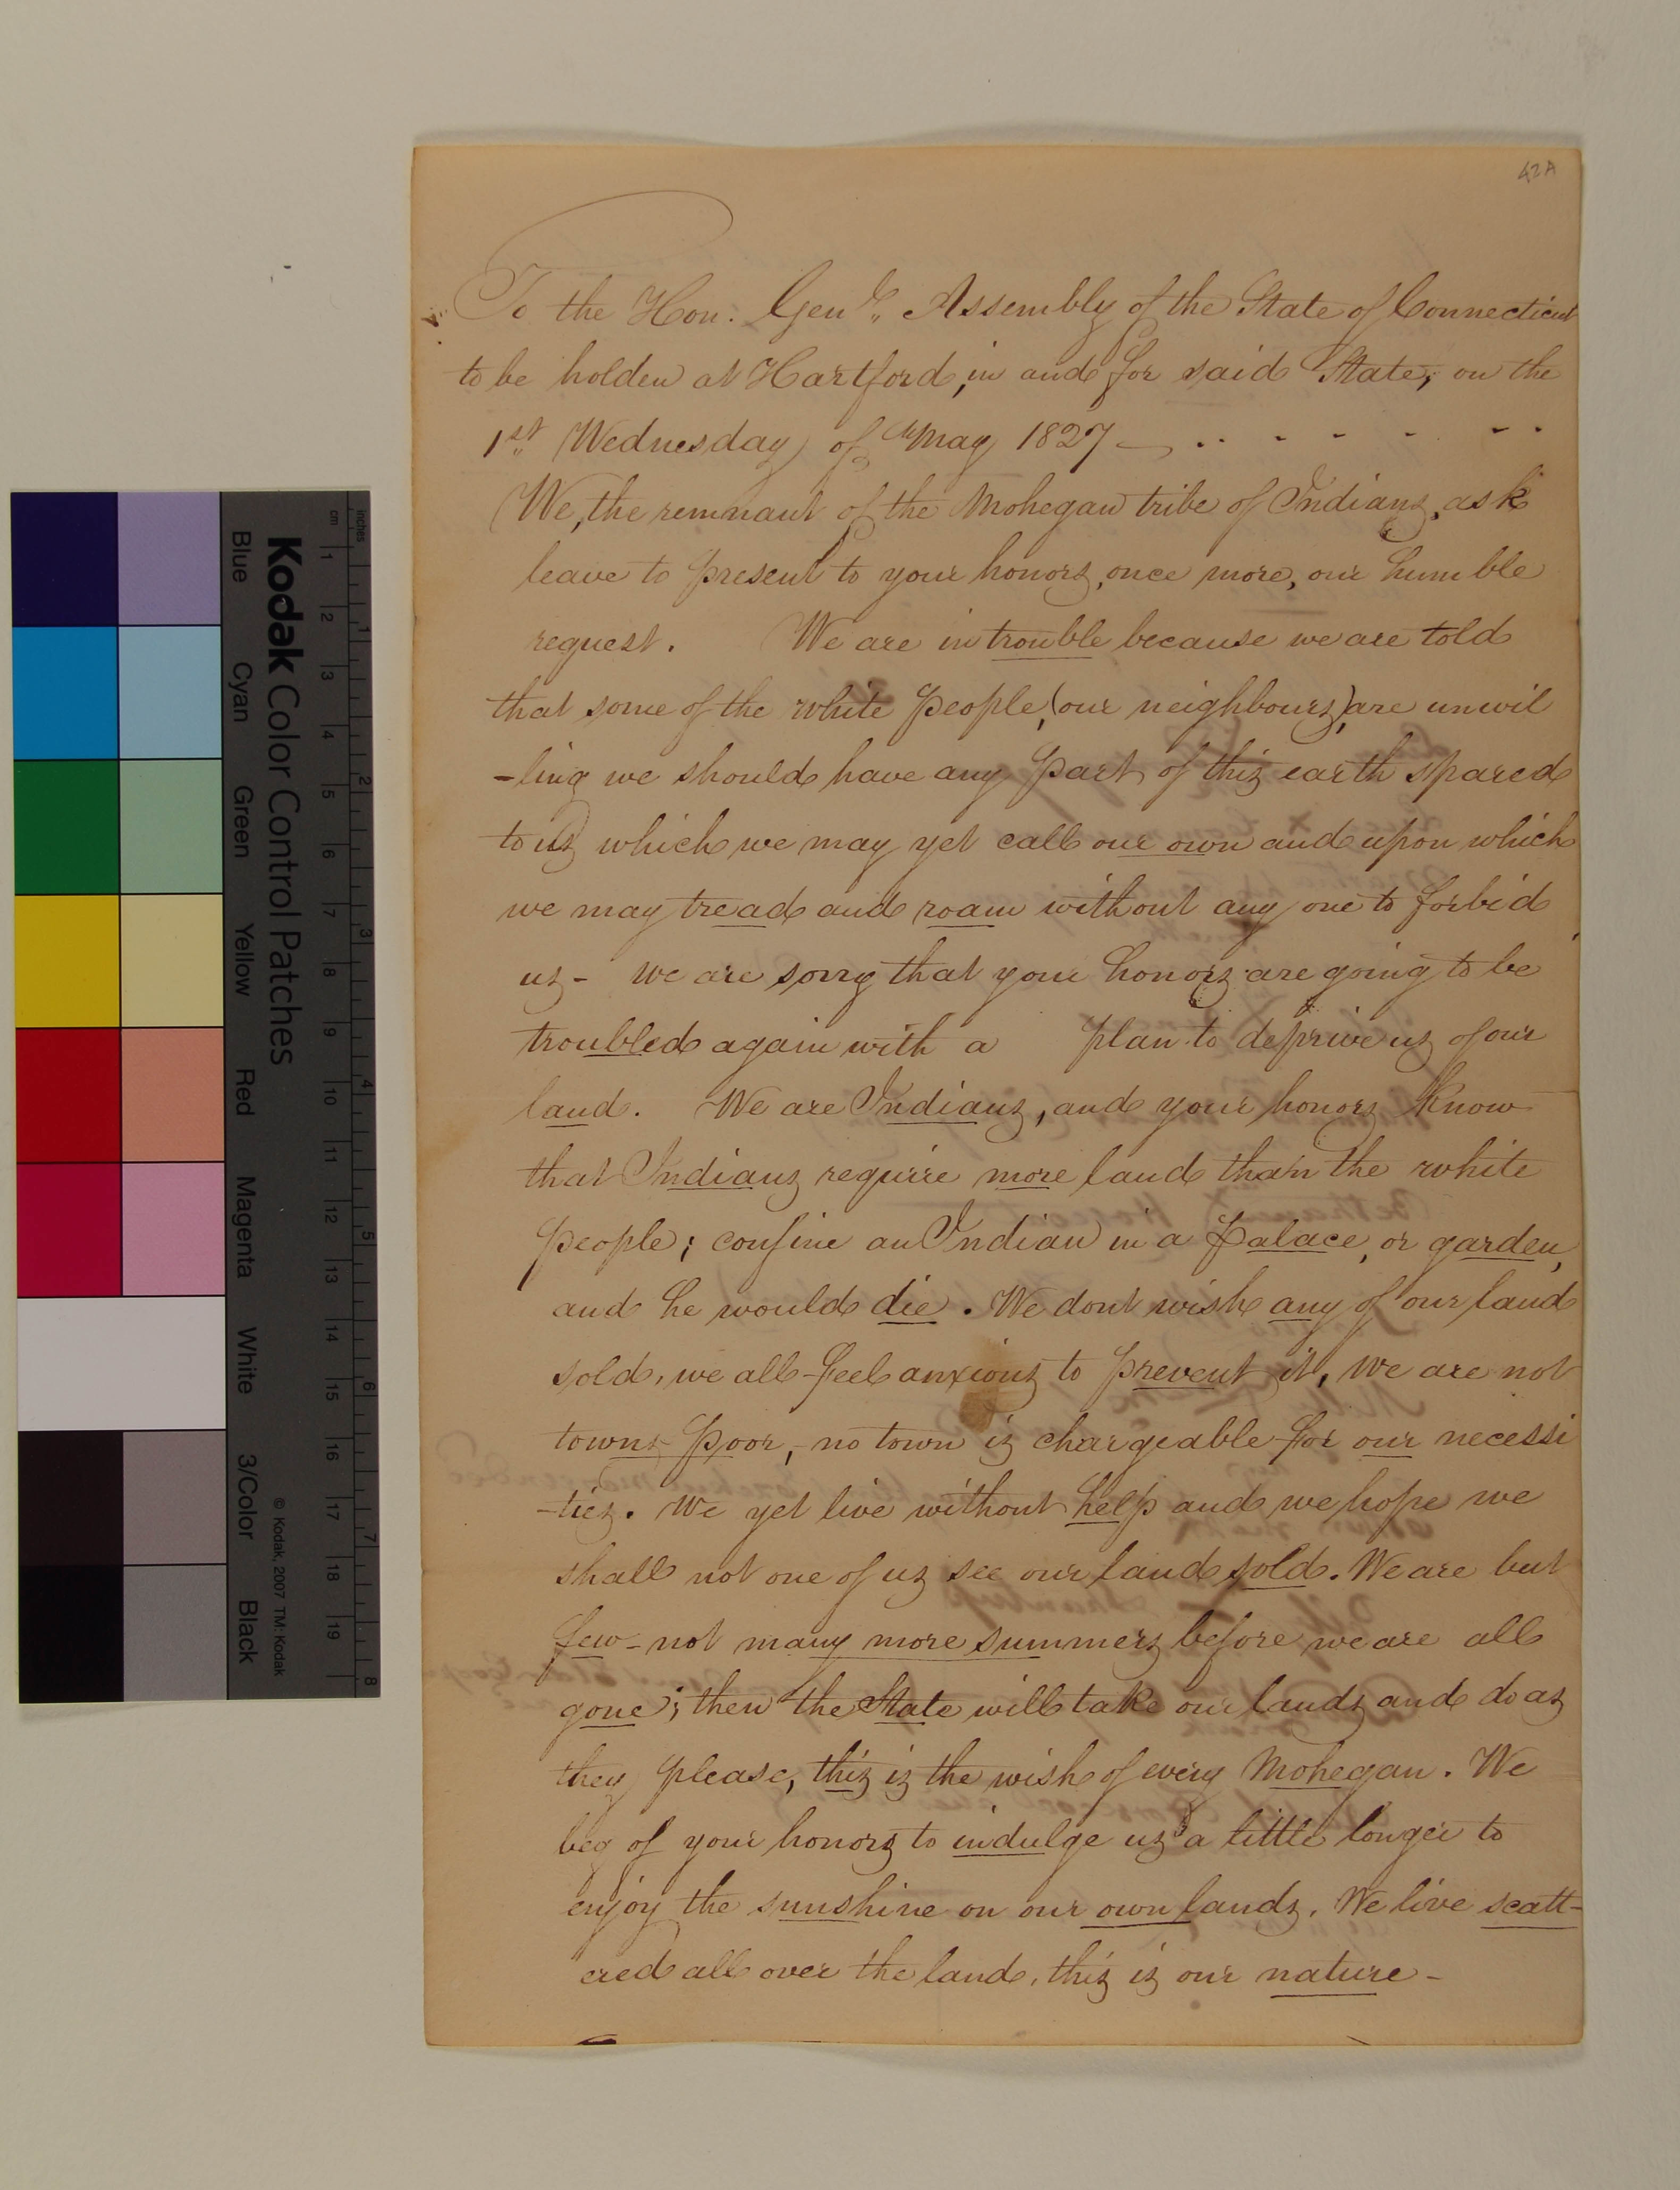 42A
To the Hon. Genl. Assembly of the State of Connecticut
to be holden at Hartford, in and for said State, on the
1st Wednesday of May 1827 — .. - - - - - .
We, the remnant of the Mohegan tribe of Indians, ask
leave to present to your honors, once more, our humble
request. We are in trouble because we are told
that some of the white people, (our neighbours), are unwil
-ling we should have any part of this earth spared
to us which we may yet call our own and upon which
we may tread and roam without any one to forbid
us - we are sorry that your honors are going to be
troubled again with a plan to deprive us of our
land. We are Indians, and your honors know
that Indians require more land than the white
people; confine an Indian in a palace, or garden,
and he would die. We dont wish any of our land
sold, we all feel anxious to prevent it, we are not
towns poor, no town is chargeable for our necessi
-ties. We yet live without help and we hope we
shall not one of us see our land sold. We are but
few - not many more summers before we are all
gone; then the State will take our lands and do as
they please, this is the wish of every Mohegan. We
beg of your honors to indulge us a little longer to
enjoy the sunshine on our own lands. We live scatt-
ered all over the land, this is our nature -
Kodak Color Control Patches
Blue Cyan Green Yellow Red Magenta White 3/Color Black
© Kodak, 2007 TM: Kodak
inches 1 2 3 4 5 6 7 8
cm 1 2 3 4 5 6 7 8 9 10 11 12 13 14 15 16 17 18 19